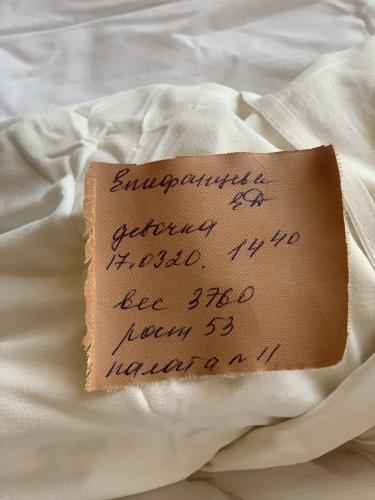 Епифанцева
ЕД
девочка
17.03.20. 14 40
вес 3760
рост 53
палата n 11